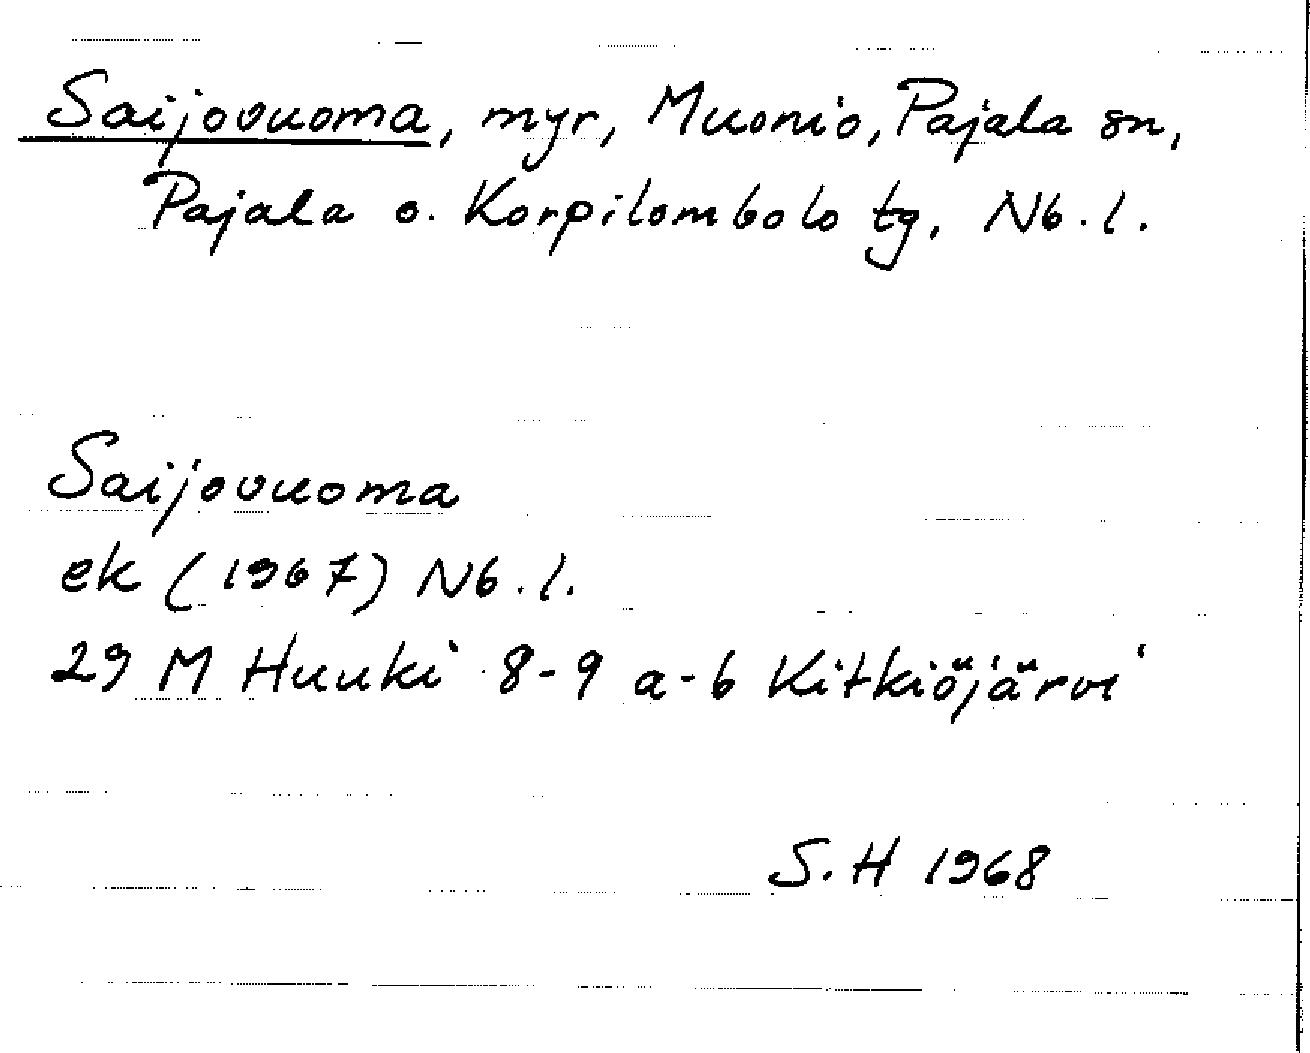 Saijovuoma, myr, Muonio, Pajala sn,
Pajala o. Korpilombolo tg, Nb.l.
Saijovuoma
ek (1967) Nb.l.
29 M Huuki 8-9 a-b Kitkiöjärvi
S.H 1968